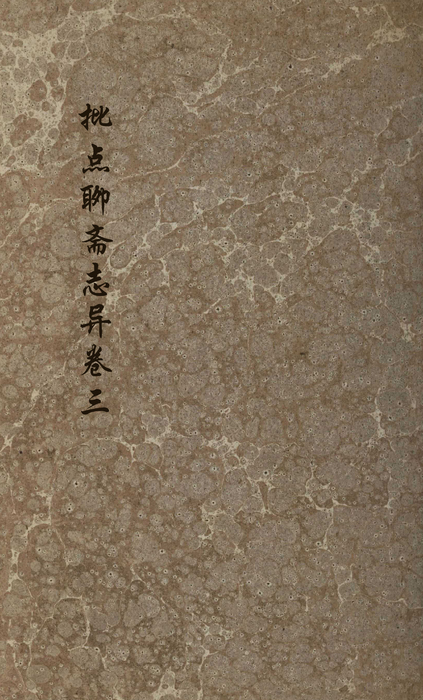 批点聊斋志异卷三